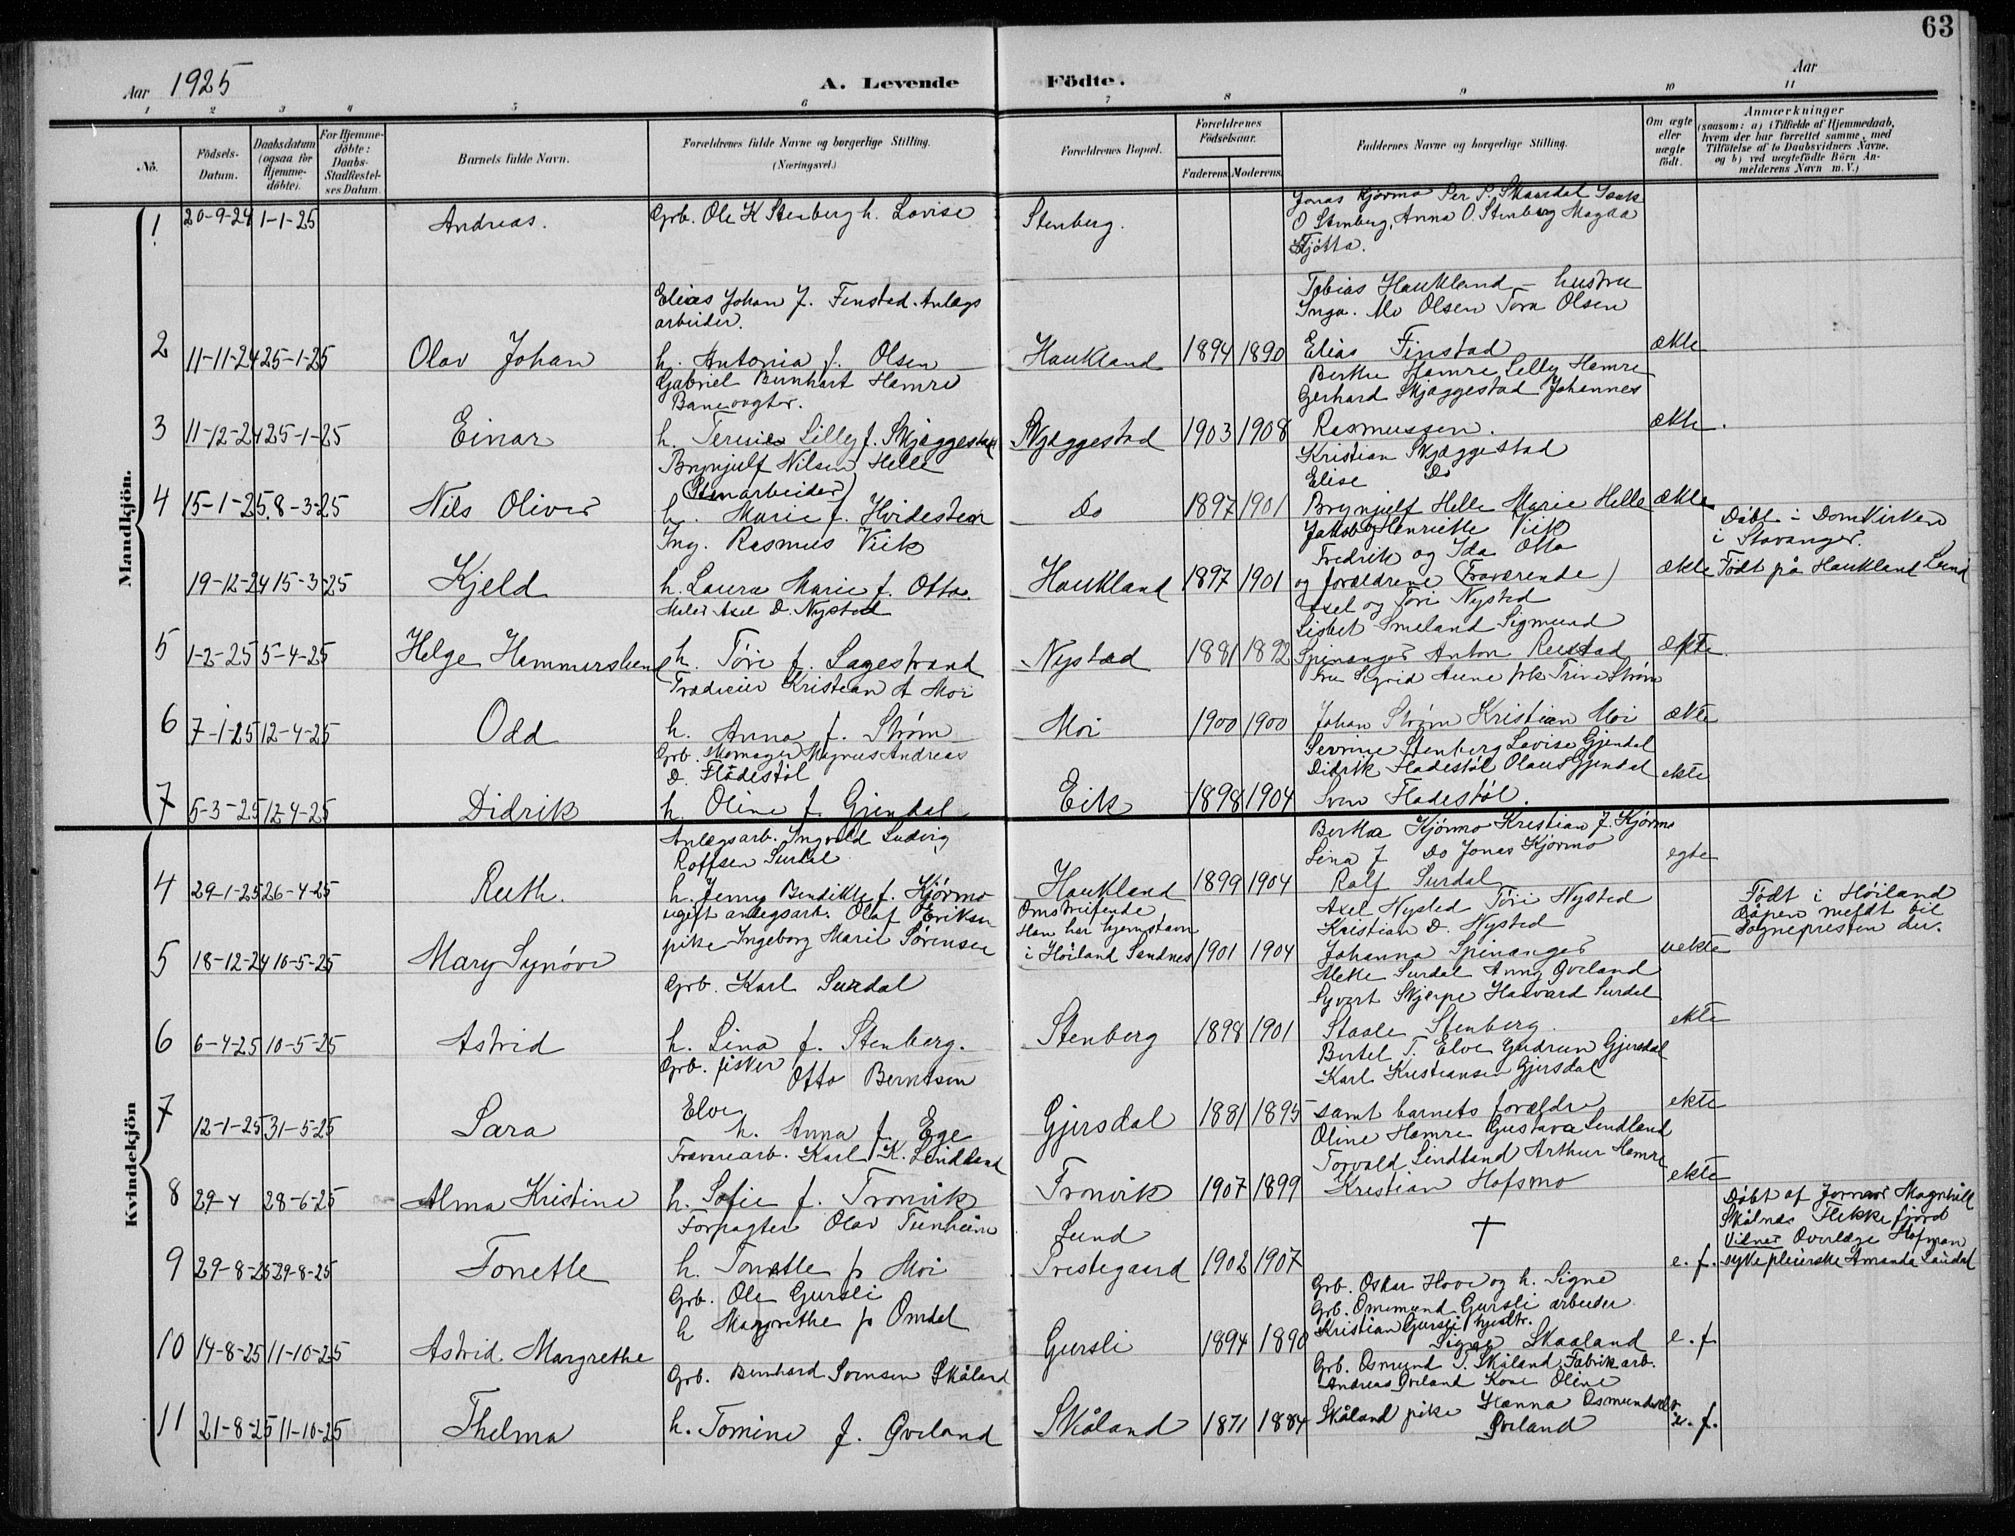 63
Aar 1925
A. Levende Födte.
Aar
1 2 3 4 5 6 7 8 9 10 11
No.
Födsels-Datum.
Daabsdatum (ogsaa for Hjemme-döbte).
For Hjemme-döbte: Daabs-Stadfæstel-ses Datum.
Barnets fulde Navn.
Forældrenes fulde Navne og borgerlige Stilling. (Næringsvei.)
Forældrenes Bopæl.
Forældrenes Födselsaar.
Faderens. Moderens.
Faddernes Navne og borgerlige Stilling.
Om ægte eller uægte födt.
Anmærkninger
(saasom: a) i Tilfælde af Hjemmedaab,
hvem der har forrettet samme, med
Tilföielse af to Daabsvidners Navne.
og b) ved uægtefödte Börn An-
melderens Navn m. V.)
Mandkjön.
1 20-9-24 1-1-25 Andreas.
Grb. Ole K Stenberg h. Lovise
Stenberg.
Jonas Kjørmo Per P. Skaardal Isak
O Stenberg, Anna O. Stenberg Magda
Fjøtta.
2 11-11-24 25-1-25 Olav Johan
Elias Johan J. Finstad. Anlægs
arbeider.
h. Antonia f. Olsen
Haukland 1894 1890
Tobias Haukland – hustru
Inga. Mo Olsen Tora Olsen
Elias Finstad
ækte
3 11-12-24 25-1-25 Einar
Gabriel Bernhart Hamre
Banevogter.
h. Terine Lilly f. Skjæggestad
Skjæggestad 1903 1908
Berthe Hamre Lelly Hamre
Gerhard Skjæggestad Johannes
Rasmussen.
ækte.
4 15-1-25 8-3-25 Nils Oliver
Brynjulf Nilsen Helle
(Stenarbeider)
h. Marie f. Hvidesten
Do 1897 1901
Kristian Skjæggestad
Elise Do
Brynjulf Helle Marie Helle
ækte
19-12-24 15-3-25 Kjeld
Ing. Rasmus Viik
h. Laura Marie f. Otto.
Haukland 1897 1901
Jakob og Henriette Viik
Fredrik og Ida Otto
og forældrene (Fraværende)
ækte
Døbt i Domkirken
i Stavanger.
Født på Haukland Lund
5 1-2-25 5-4-25 Helge Hammerslund
Maler Axel D. Nystad
h. Tøri f. Lagestrand
Nystad 1881 1892
Axel og Tøri Nystad
Lisbet Smeland Sigmund
Spinanger Anton Reestad
Fru Sigrid Aune frk Trine Strøm
ækte.
6 7-1-25 12-4-25 Odd
Kristian A Moi
h. Anna f. Strøm
Moi 1900 1900
Johan Strøm Kristian Moi
ækte
7 5-3-25 12-4-25 Didrik
Grb. Skomager Magnus Andreas
D. Flådestøl
h. Oline f. Gjendal
Eik 1898 1904
Serrine Stenberg Lovise Gjendal
Didrik Fladestøl Olaus Gjendal
Sven Fladestøl.
ekte
Kvindekjön
4 29-1-25 26-4-25 Ruth.
Anlægsarb. Ingvald Ludvig
Rolfsen Surdal
h. Jenny Bendikte f. Kjørmo
Haukland 1899 1904
Bertha Kjørmo Kristian J. Kjørmo
Lina J Do Jonas Kjørmo
Ralf Surdal
egte
5 18-12-24 10-5-25 Mary Synøve
ugift anlegsarb. Olaf Eriksen
pike Ingeborg Marie Sørensen
Omstreifende
Han har hjemstavn
i Høiland Sandnes 1901 1904
Axel Nystad Tøri Nystad
Kristian D. Nystad
Johanna Spinanger
uekte
Født i Høiland
Dåpen meldt til
sognepresten der.
6 6-4-25 10-5-25 Astrid
Grb. Karl Surdal
h. Lina f. Stenberg.
Stenberg 1898 1901
Mette Surdal Anny Qveland
Syvert Skjerpe Haavard Surdal
Staale Stenberg.
ekte
7 12-1-25 31-5-25 Sara
Grb. fisker Otto Berntsen
Elve
h. Anna f. Ege
Gjersdal 1881 1895
Bertel T. Elve Gudrun Gjersdal
Karl Kristiansen Gjersdal
samt barnets forældre
ekte
8 29-4 28-6-25 Alma Kristine
Karl K. Lindland
h. Sofie f. Tronvik
Tronvik 1907 1899
Oline Hamre Gustava Lindland
Torvald Lindland Arthur Hamre
Kristian Hofsmo
ekte
9 29-8-25 29-8-25 Tonette
Forpagter Olav Tunheim
h. Tonette f Moi
Lund
Prestegaard 1902 1907
†
e. f.
Døbt af Jormor Magnhild
Skålnes Flekkefjord
Vidner Overlæge Hofman
sykepleierske Amanda Laudal
10 14-8-25 11-10-25 Astrid Margrethe
Grb. Ole Gursli
h Margrethe f Omdal
Gursli 1894 1890
Grb. Oskar Hove og h. Signe
Grb. Ommund Gursli arbeider
Kristian Gursli hjustr.
Signe Skaaland
e. f
11 21-8-25 11-10-25 Thelma
Grb. Bernhard Sørensen Skåland
h. Tomine f. Qveland
Skåland 1871 1884
Grb. Osmund T. Skåland. Fabrikarb.
Andreas Qveland Kone Oline
Skåland pike Hanna Osmundsdtr
Qveland
e. f.